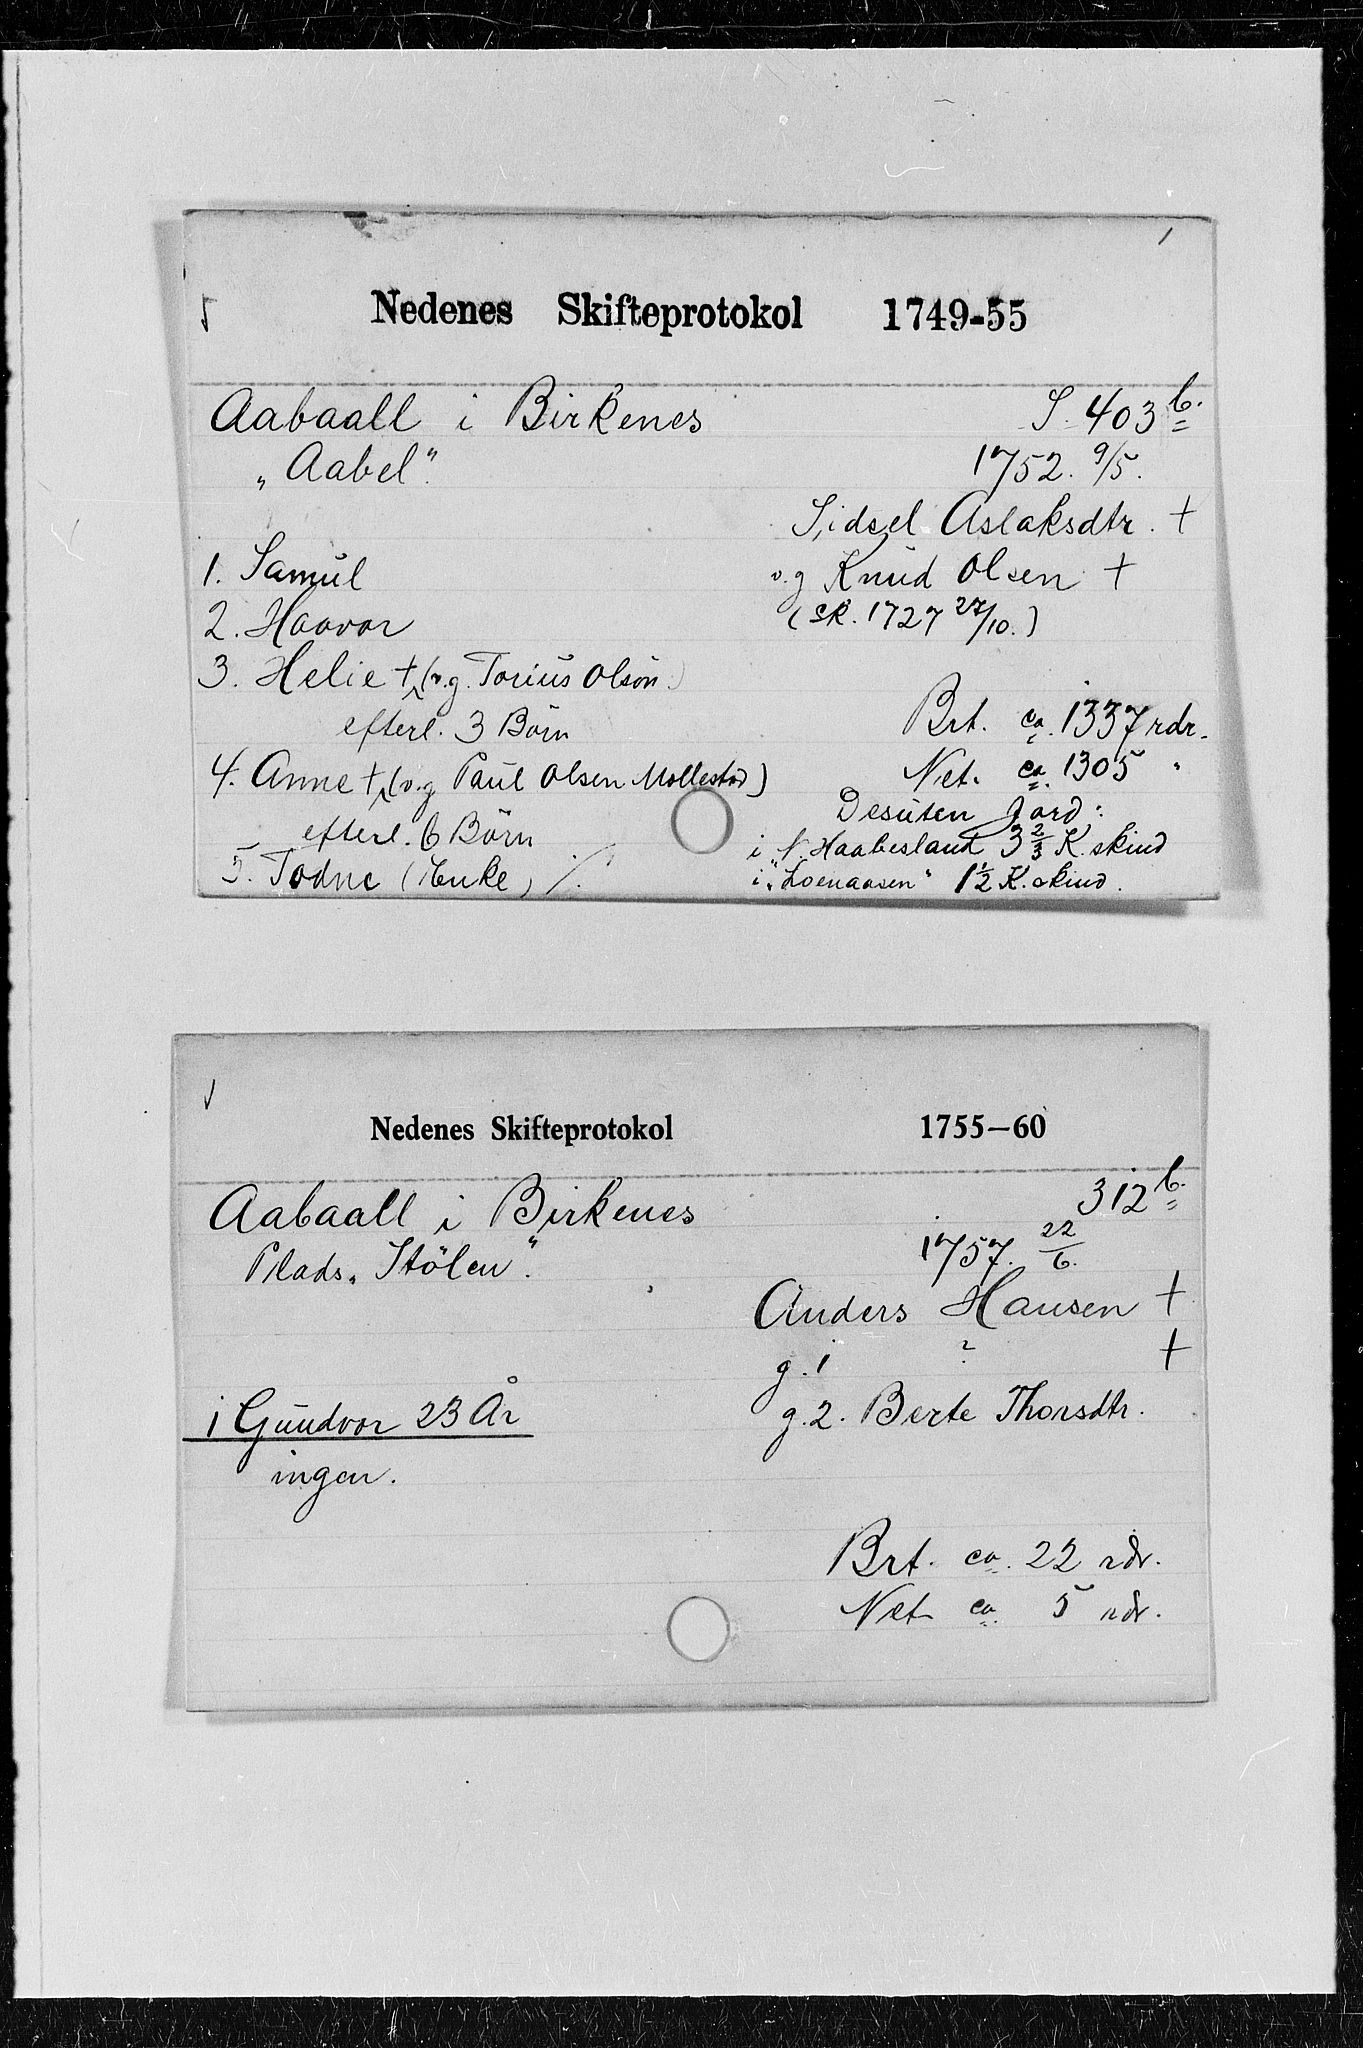 1
Nedenes Skifteprotokol 1749-55
Aabaall i Birkenes S. 403 b.
"Aabel". 1752. 9/5.
Sidsel Aslaksdtr. †
1. Samúl v.g Knúd Olsen †
2. Haavor (SK. 1727 27/10.)
3. Helie † (v.g. Torius Olsön.)
efterl. 3 Börn Brt. ca. 1337 rdr.
4. Anne † (v.g Paúl Olsen Mollestad) Net. ca. 1305 "
efterl. 6 Börn Desúten Jord:
5. Todne (Enke) ./. i N. Haabesland 3 2/3 K. skind
i "Loenaasen" 1 1/2 K. skind.
Nedenes Skifteprotokol 1755–60
Aabaall i Birkenes 312 b.
Plads "Stölen". 1757. 22/6.
Anders Hansen †
g. 1 ? †
1 Gúndvor 23 År g. 2. Berte Thorsdtr.
ingen.
Brt. ca. 22 rdr.
Net ca. 5 rdr.